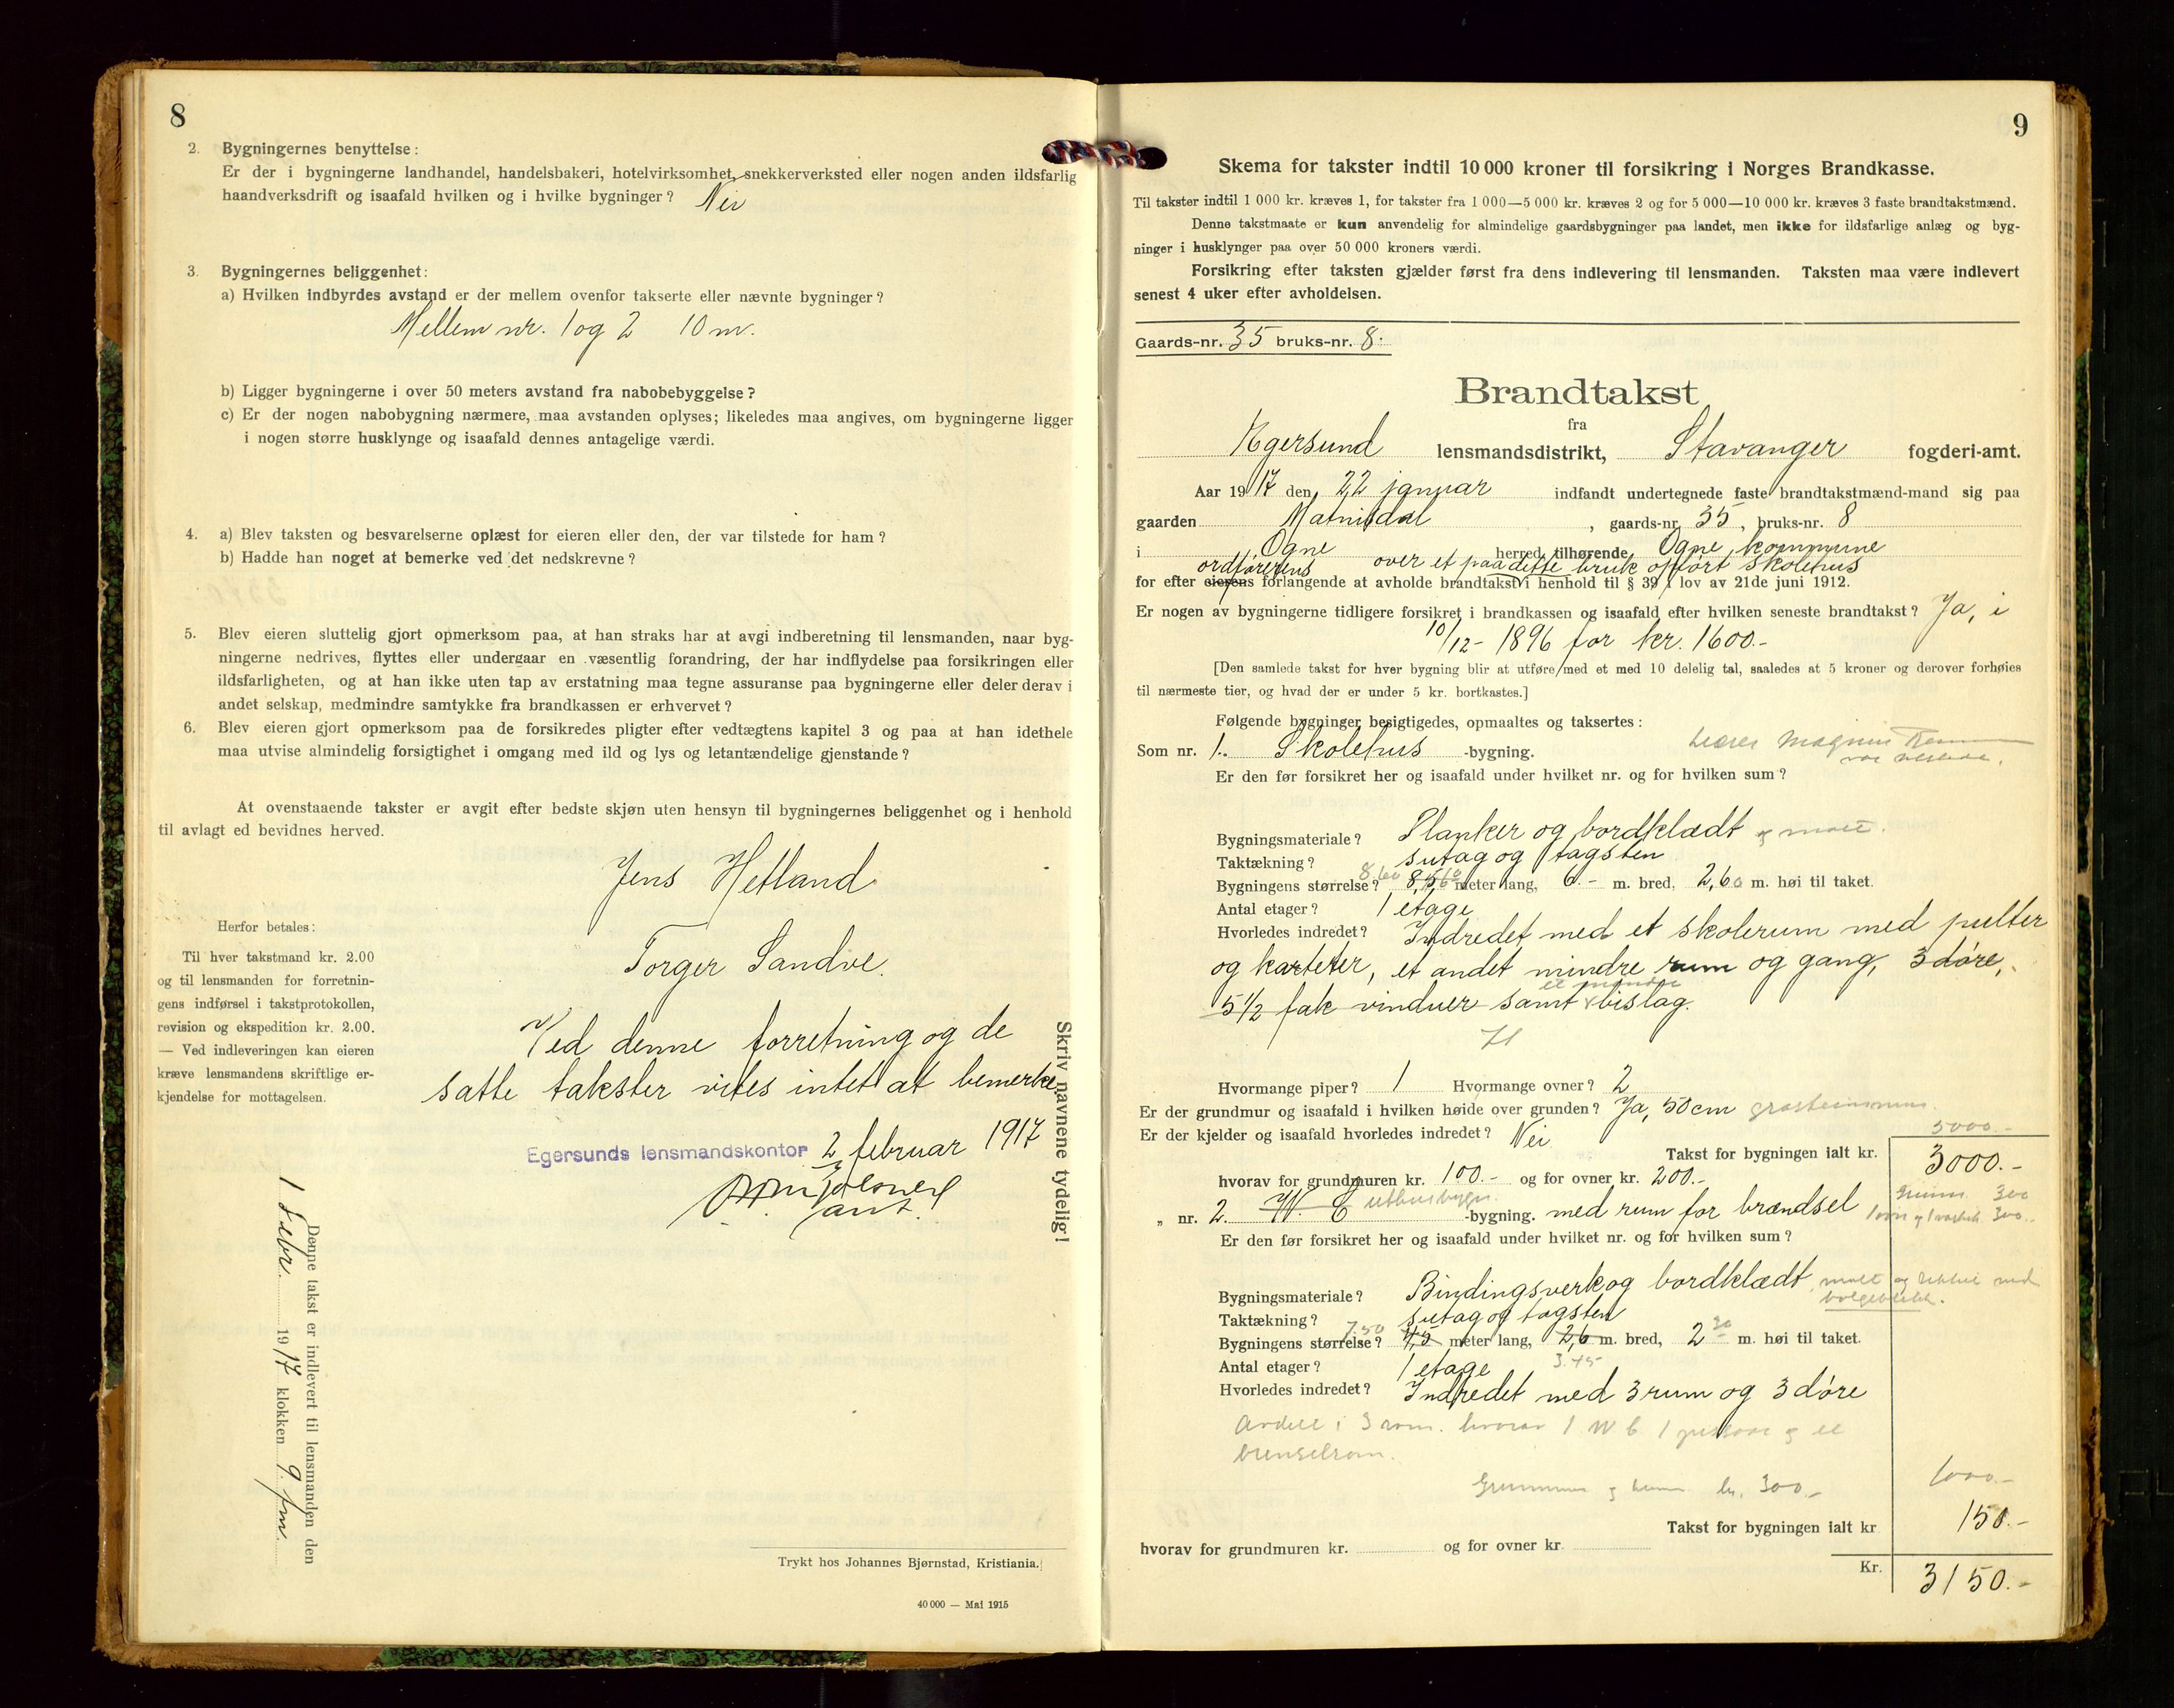 8
2. Bygningernes benyttelse:
Er der i bygningerne landhandel, handelsbakeri, hotelvirksomhet, snekkerverksted eller nogen anden ildsfarlig
haandverksdrift og isaafald hvilken og i hvilke bygninger? Nei
3. Bygningernes beliggenhet:
a) Hvilken indbyrdes avstand er der mellem ovenfor takserte eller nævnte bygninger?
Mellem nr. 1 og 2 10 m.
b) Ligger bygningerne i over 50 meters avstand fra nabobebyggelse?
c) Er der nogen nabobygning nærmere, maa avstanden oplyses; likeledes maa angives, om bygningerne ligger
i nogen større husklynge og isaafald dennes antagelige værdi.
4. a) Blev taksten og besvarelserne oplæst for eieren eller den, der var tilstede for ham?
b) Hadde han noget at bemerke ved det nedskrevne?
5. Blev eieren sluttelig gjort opmerksom paa, at han straks har at avgi indberetning til lensmanden, naar byg-
ningerne nedrives, flyttes eller undergaar en væsentlig forandring, der har indflydelse paa forsikringen eller
ildsfarligheten, og at han ikke uten tap av erstatning maa tegne assuranse paa bygningerne eller deler derav i
andet selskap, medmindre samtykke fra brandkassen er erhvervet?
6. Blev eieren gjort opmerksom paa de forsikredes pligter efter vedtægtens kapitel 3 og paa at han idethele
maa utvise almindelig forsigtighet i omgang med ild og lys og letantændelige gjenstande?
At ovenstaaende takster er avgit efter bedste skjøn uten hensyn til bygningernes beliggenhet og i henhold
til avlagt ed bevidnes herved.
Jens Hetland
Torger Sandve.
Herfor betales:
Til hver takstmand kr. 2.00
og til lensmanden for forretnin-
gens indførsel i takstprotokollen,
revision og ekspedition kr. 2.00.
— Ved indleveringen kan eieren
kræve lensmandens skriftlige er-
kjendelse for mottagelsen.
Ved denne forretning og de
satte takster vites intet at bemerke.
Egersunds lensmandskontor 2 februar 1917
Skriv navnene tydelig!
Denne takst er indlevert til lensmanden den
1 Febr. 1917 klokken 9 fm.
Trykt hos Johannes Bjørnstad, Kristiania.
40 000 — Mai 1915
9
Skema for takster indtil 10 000 kroner til forsikring i Norges Brandkasse.
Til takster indtil 1 000 kr. kræves 1, for takster fra 1 000—5 000 kr. kræves 2 og for 5 000—10 000 kr. kræves 3 faste brandtakstmænd.
Denne takstmaate er kun anvendelig for almindelige gaardsbygninger paa landet, men ikke for ildsfarlige anlæg og byg-
ninger i husklynger paa over 50 000 kroners værdi.
Forsikring efter taksten gjælder først fra dens indlevering til lensmanden. Taksten maa være indlevert
senest 4 uker efter avholdelsen.
Gaards-nr. 35 bruks-nr. 8.
Brandtakst
fra
Egersund lensmandsdistrikt, Stavanger fogderi-amt.
Aar 1917 den 22 januar indfandt undertegnede faste brandtakstmænd-mand sig paa
gaarden Matnisdal, gaards-nr. 35, bruks-nr. 8
i Ogne herred, tilhørende Ogne kommune
ordførerens over et paa dette bruk opført skolehus
for efter eierens forlangende at avholde brandtakst i henhold til § 39 i lov av 21de juni 1912.
Er nogen av bygningerne tidligere forsikret i brandkassen og isaafald efter hvilken seneste brandtakst? Ja, i
10/12 - 1896 for kr. 1600.-
[Den samlede takst for hver bygning blir at utføre med et med 10 delelig tal, saaledes at 5 kroner og derover forhøies
til nærmeste tier, og hvad der er under 5 kr. bortkastes.]
Følgende bygninger besigtigedes, opmaaltes og taksertes:
Som nr. 1. Skolehus -bygning.
Er den før forsikret her og isaafald under hvilket nr. og for hvilken sum?
Bygningsmateriale? Planker og bordklædt og malt.
Taktækning? sutag og tagsten
Bygningens størrelse? 8.60 meter lang, 6.- m. bred, 2,60 m. høi til taket.
Antal etager? 1 etage
Hvorledes indredet? Indredet med et skolerum med pulter
og karteter, et andet mindre rum og gang, 3 døre,
et mindre
5 1/2 fak vinduer samt bislag.
Hvormange piper? 1 Hvormange ovner? 2
Er der grundmur og isaafald i hvilken høide over grunden? Ja, 50 cm
Er der kjelder og isaafald hvorledes indredet? Nei
5000.-
Takst for bygningen ialt kr. 3000.-
hvorav for grundmuren kr. 100.- og for ovner kr. 200.-
" nr. 2. W. C uthusbygn. -bygning. med rum for brændsel
300
Er den før forsikret her og isaafald under hvilket nr. og for hvilken sum?
Bygningsmateriale? Bindingsverk og bordklædt malt
Taktækning? sutag og tagsten
Bygningens størrelse? 7.50 4,5 meter lang, 2,6 m. bred, 2 30 m. høi til taket.
3.45
Antal etager? 1 etage
Hvorledes indredet? Indredet med 3 rum og 3 døre
Avdelt i 3 rom. hvorav 1 W C 1 og et
brenselrom.
kr. 300.-
1000.-
Takst for bygningen ialt kr 150.-
hvorav for grundmuren kr. og for ovner kr
Kr. 3150.-